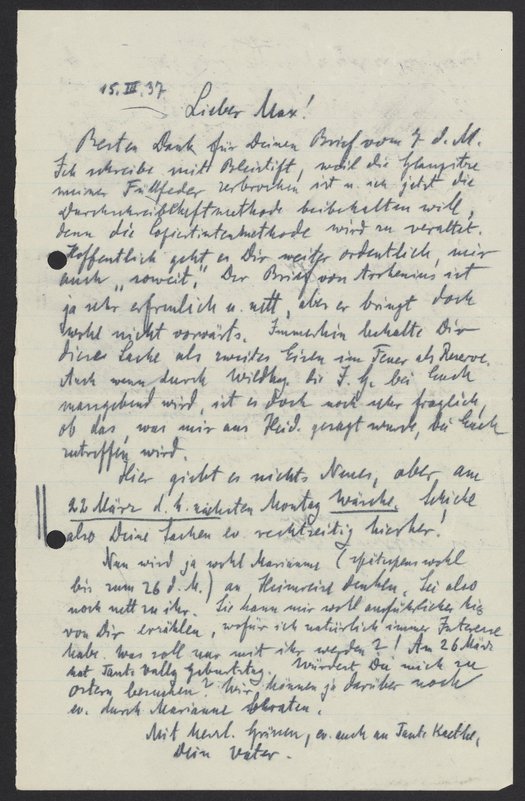 15.III.37
Lieber Max!
Besten Dank für Deinen Brief vom 7. d. M.
Ich schreibe mit Bleistift, weil die Glasspitze
meiner Füllfeder zerbrochen ist u. ich jetzt die
Durchschreibheftmethode beibehalten will,
denn die Copiertintenmethode wird zu veraltet.
Hoffentlich geht es Dir weiter ordentlich, mir
auch „soweit". Der Brief von Arrhenius ist
ja sehr erfreulich u. nett, aber er bringt doch
wohl nicht vorwärts. Immerhin behalte Dir
diese Sache als zweites Eisen im Feuer als Reserve.
Auch wenn durch die I. G. bei Euch
massgebend wird, ist es doch noch sehr fraglich,
ob das, was mir aus Heid. gesagt wurde, bei Euch
zutreffen wird.
Hier giebt es nichts Neues, aber am
22 März d. h. nächsten Montag Wäsche. Schicke
also Deine Sachen ev. rechtzeitig hierher!
Nun wird ja wohl Marianne (spätestens wohl
bis zum 26 d. M.) an Heimreise denken. Sei also
noch nett zu ihr. Sie kann mir wohl ausführliches
von Dir erzählen, wofür ich natürlich immer Interesse
habe. Was soll nur mit ihr werden?! Am 26 März
hat Tante Vally Geburtstag. Würdest Du mich zu
Ostern besuchen? Wir können ja darüber noch
ev. durch Marianne beraten.
Mit herzl. Grüssen, ev. auch an Tante Kaethe,
Dein Vater.